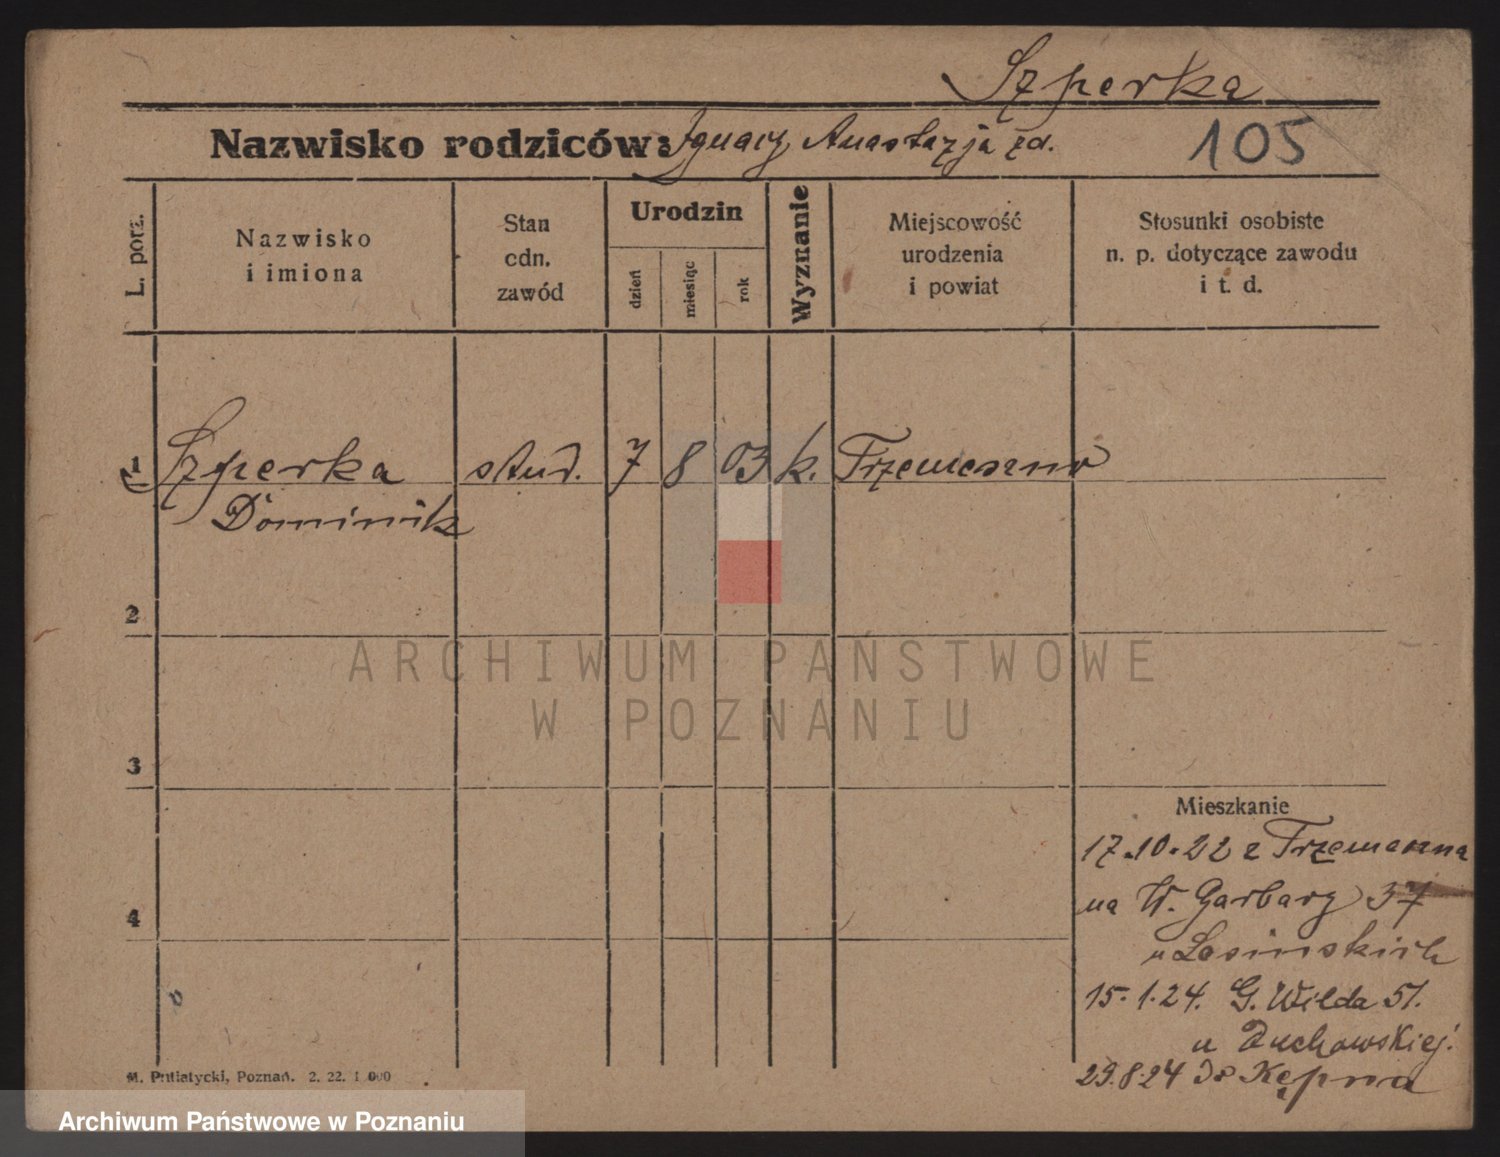 Szperka
Nazwisko rodziców: Ignacy Anastazja zd.
105
L. porz.
Nazwisko
i imiona
Stan
cdn.
zawód
Urodzin
dzień
miesiąc
rok
Wyznanie
Miejscowość
urodzenia
i powiat
Stosunki osobiste
n. p. dotyczące zawodu
i t. d.
1 Szperka stud. 7 8 03 k. Trzemeszno
Dominik
2
ARCHIWUM PAŃSTWOWE
W POZNANIU
3
Mieszkanie
17.10.22 z Trzemeszna
na W. Garbary 37
4
u Losinskich
15.1.24. G. Wilda 51.
u Duchowskiej.
29.8.24 do Kępna
M. Putiatycki, Poznań. 2. 22. 1 000
Archiwum Państwowe w Poznaniu